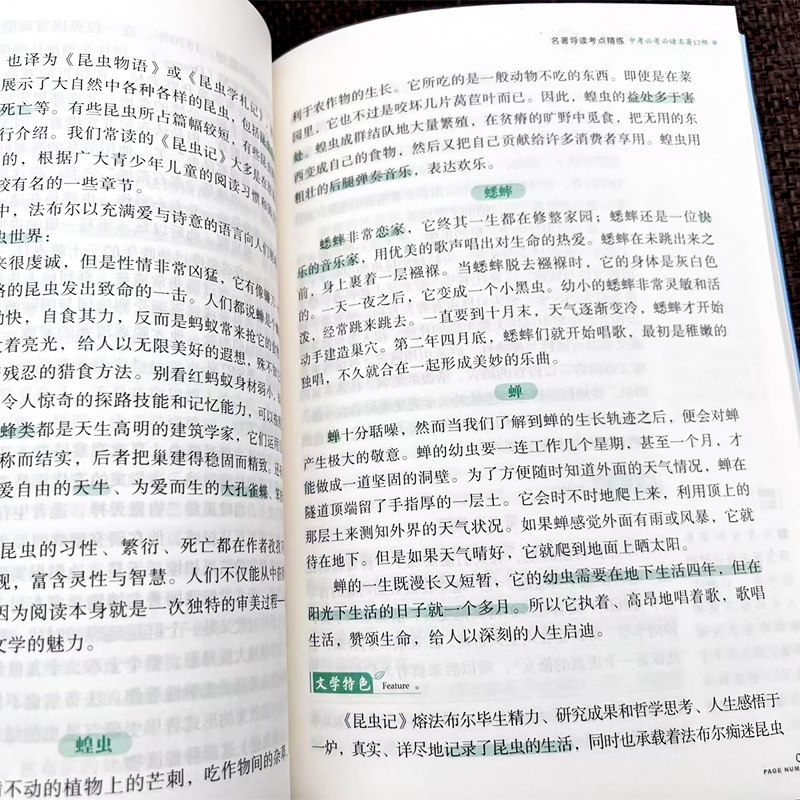 也译为《昆虫物语》或《昆虫学札记》,
展示了大自然中各种各样的昆虫,包括
死亡等。有些昆虫所占篇幅较短,有些昆虫
行介绍。我们常读的《昆虫记》大多是在原
的,根据广大青少年儿童的阅读习惯和
较有名的一些章节。
中,法布尔以充满爱与诗意的语言向人们
虫世界:
来很虔诚,但是性情非常凶猛,它有像镰刀
路的昆虫发出致命的一击。人们都说蝉是个
勤快,自食其力,反而是蚂蚁常来抢它的
着亮光,给人以无限美好的遐想,殊不知
残忍的猎食方法。别看红蚂蚁身材弱小,
令人惊奇的探路技能和记忆能力,可以
蜂类都是天生高明的建筑学家,它们运用
称而结实,后者把巢建得稳固而精致,还
爱自由的天牛、为爱而生的大孔雀蝶、
昆虫的习性、繁衍、死亡都在作者孜孜
现,富含灵性与智慧。人们不仅能从中获
因为阅读本身就是一次独特的审美过程——
文学的魅力。
蝗虫
不动的植物上的芒刺,吃作物间的杂草,
名著导读考点精炼 中考必考必读名著12部
利于农作物的生长。它所吃的是一般动物不吃的东西。即使是在菜
园里,它也不过是咬坏几片莴苣叶而已。因此,蝗虫的益处多于害
处。蝗虫成群结队地大量繁殖,在贫瘠的旷野中觅食,把无用的东
西变成自己的食物,然后又把自己贡献给许多消费者享用。蝗虫用
粗壮的后腿弹奏音乐,表达欢乐。
蟋蟀
蟋蟀非常恋家,它终其一生都在修整家园;蟋蟀还是一位快
乐的音乐家,用优美的歌声唱出对生命的热爱。蟋蟀在未跳出来之
前,身上裹着一层襁褓。当蟋蟀脱去襁褓时,它的身体是灰白色
的。一天一夜之后,它变成一个小黑虫。幼小的蟋蟀非常灵敏和活
泼,经常跳来跳去。一直要到十月末,天气逐渐变冷,蟋蟀才开始
动手建造巢穴。第二年四月底,蟋蟀们就开始唱歌,最初是稚嫩的
独唱,不久就合在一起形成美妙的乐曲。
蝉
蝉十分聒噪,然而当我们了解到蝉的生长轨迹之后,便会对蝉
产生极大的敬意。蝉的幼虫要一连工作几个星期,甚至一个月,才
能做成一道坚固的洞壁。为了方便随时知道外面的天气情况,蝉在
隧道顶端留了手指厚的一层土。它会时不时地爬上来,利用顶上的
那层土来测知外界的天气状况。如果蝉感觉外面有雨或风暴,它就
待在地下。但是如果天气晴好,它就爬到地面上晒太阳。
蝉的一生既漫长又短暂,它的幼虫需要在地下生活四年,但在
阳光下生活的日子就一个多月。所以它执着、高昂地唱着歌,歌唱
生活,赞颂生命,给人以深刻的人生启迪。
文学特色 Feature
《昆虫记》熔法布尔毕生精力、研究成果和哲学思考、人生感悟于
一炉,真实、详尽地记录了昆虫的生活,同时也承载着法布尔痴迷昆虫
PAGE NUM